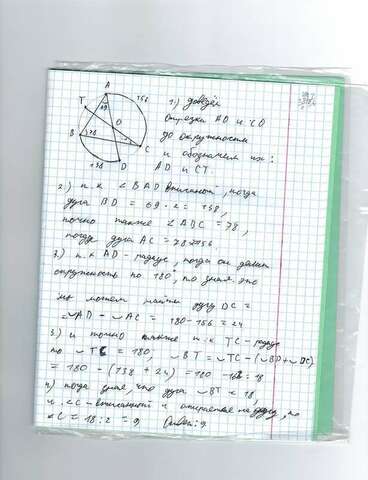 A
T
69
156
O
B
78
C
138
D
1.) доведём
отрезки AO и CO
до окружности
и обозначим их:
AD и CT.
2.) т.к ∠BAD вписанный, тогда
дуга BD = 69·2 = 138,
точно также ∠ = 78,
тогда дуга AC = 78·2=156
3.) т.к AD - , тогда он делит
окружность по 180°, то зная это
мы можем найти дугу DC =
= ◡AD - ◡AC = 180-156 = 24
3.) и точно также т.к TC -
то ◡TC = 180, ◡BT = ◡TC-(◡BD+◡DC)
= 180 - (138 + 24) = 180 - 162 = 18
4) тогда зная, что дуга ◡BT = 18,
и ∠C - вписанный и опирается на дугу, то
∠C = 18:2 = 9, Ответ: 9.